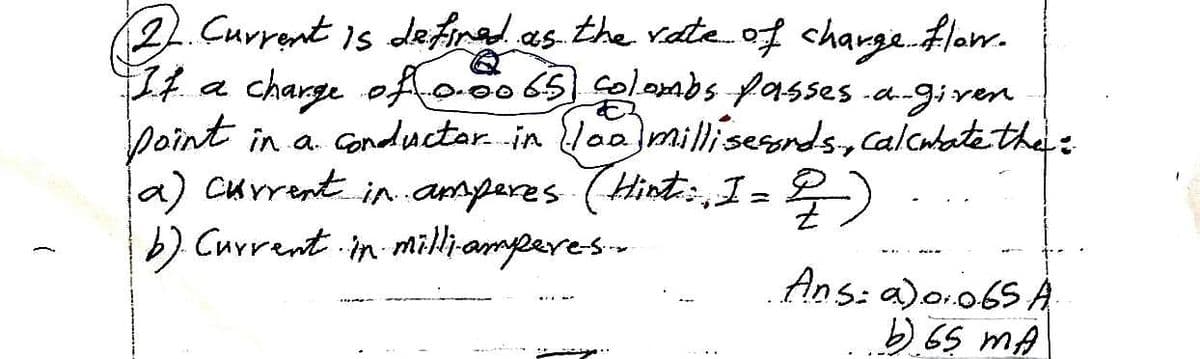 2. Current is defined as the rate of charge flow.
Q
If a charge of 0.0065 colombs passes a given
t
point in a conductor in 100 milliseconds, calculate the:
a) current in amperes (Hint:, I = Q/t)
b) Current in milli-amperes
Ans: a) 0.065 A
b) 65 mA